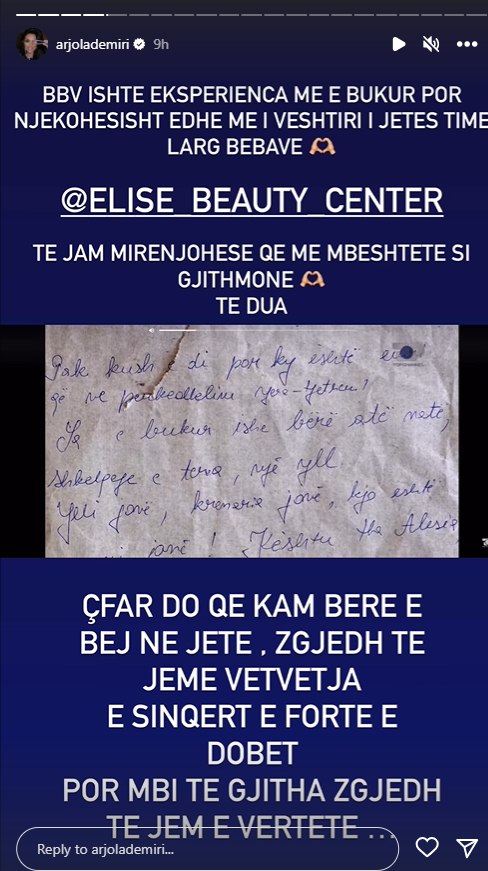 arjolademiri 9h
BBV ISHTE EKSPERIENCA ME E BUKUR POR
NJEKOHESISHT EDHE ME I VESHTIRI I JETES TIME
LARG BEBAVE 🫶🏼
@ELISE_BEAUTY_CENTER
TE JAM MIRENJOHESE QE ME MBESHTETE SI
GJITHMONE 🫶🏼
TE DUA
Pak kush e di por ky është
që ne
Sa e bukur ishe bërë atë natë,
shkelqeje e tëra, një yll
Ylli jonë, krenaria jonë, kjo është
jonë! Kështu tha Alesia
ÇFAR DO QE KAM BERE E
BEJ NE JETE , ZGJEDH TE
JEME VETVETJA
E SINQERT E FORTE E
DOBET
POR MBI TE GJITHA ZGJEDH
TE JEM E VERTETE ...
Reply to arjolademiri...